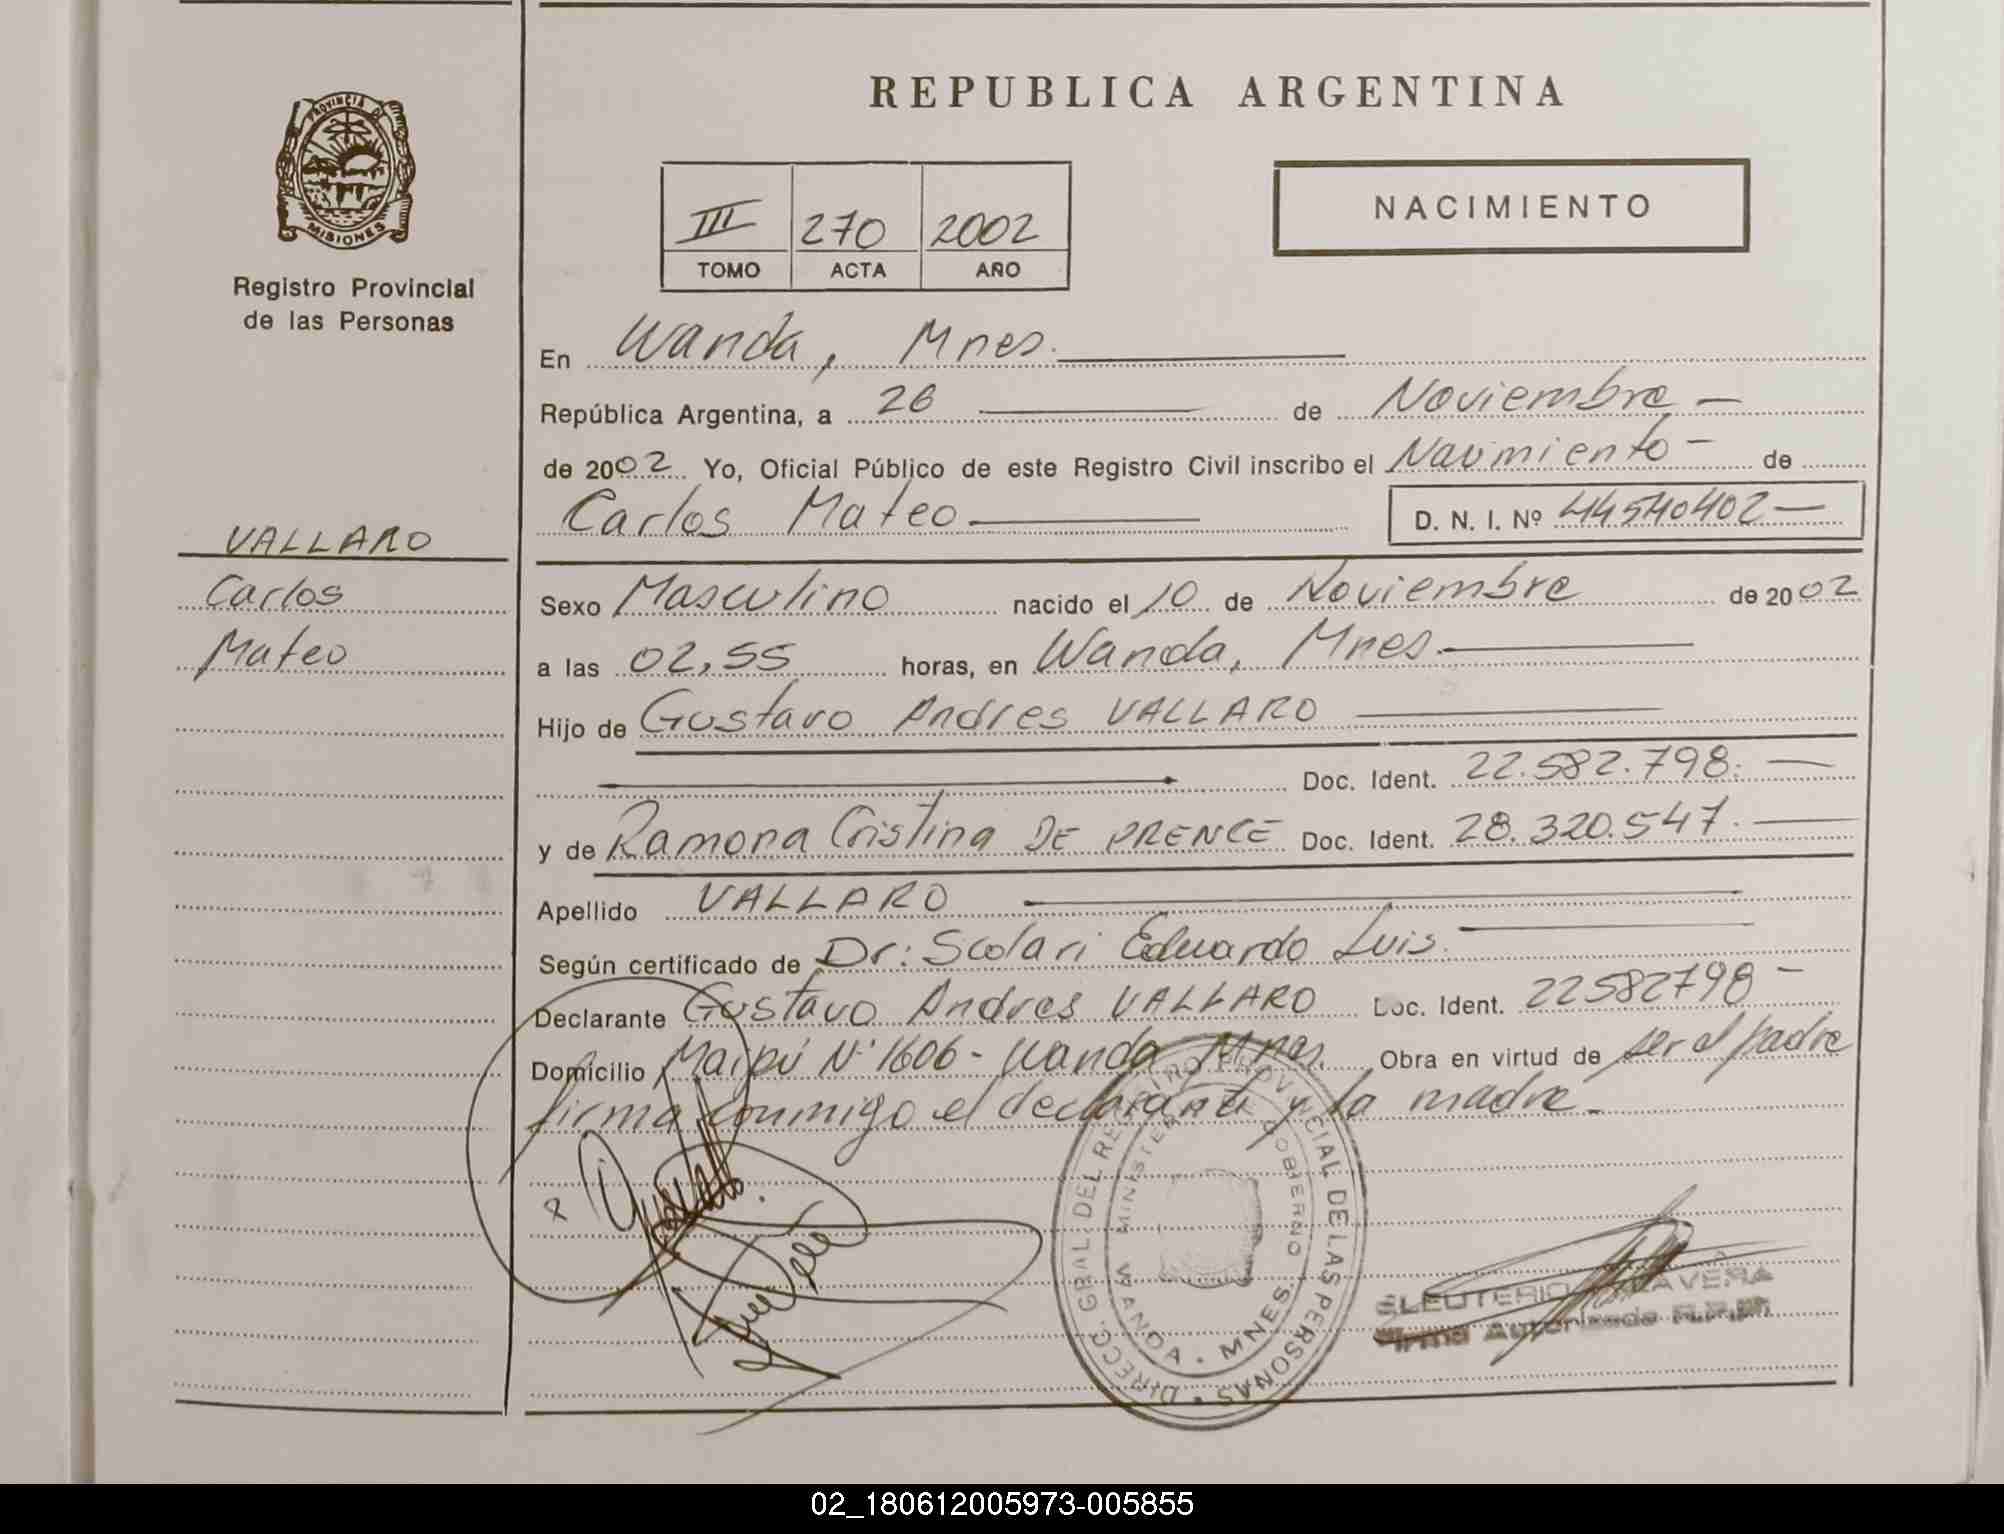 REPUBLICA ARGENTINA
PROVINCIA DE
MISIONES
Registro Provincial
de las Personas
III 270 2002
TOMO ACTA AÑO
NACIMIENTO
En Wanda, Mnes.
República Argentina, a 26 de Noviembre
de 2002 Yo, Oficial Público de este Registro Civil inscribo el Nacimiento de
Carlos Mateo D. N. I. Nº 44540402
VALLARO
Carlos
Mateo
Sexo Masculino nacido el 10 de Noviembre de 2002
a las 02,55 horas, en Wanda, Mnes.
Hijo de Gustavo Andres VALLARO
Doc. Ident. 22.582.798.
y de Ramona Cristina DE PRENCE Doc. Ident. 28.320.547.
Apellido VALLARO
Según certificado de Dr: Scolari Eduardo Luis.
Declarante Gustavo Andres VALLARO Doc. Ident. 22582798
Domicilio Maipú Nº 1606 - Wanda, Mnes. Obra en virtud de ser el padre
firma conmigo el declarante y la madre.
DIRECC. GRAL. DEL REGISTRO PROVINCIAL DE LAS PERSONAS
MINISTERIO DE GOBIERNO
WANDA - MNES.
ELEUTERIO
Firma Autorizada
02_180612005973-005855